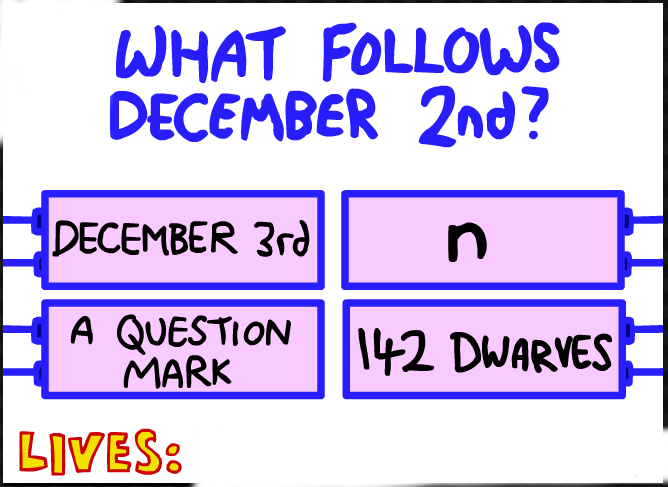 WHAT FOLLOWS
DECEMBER 2nd?
DECEMBER 3rd
n
A QUESTION
MARK
142 DWARVES
LIVES: